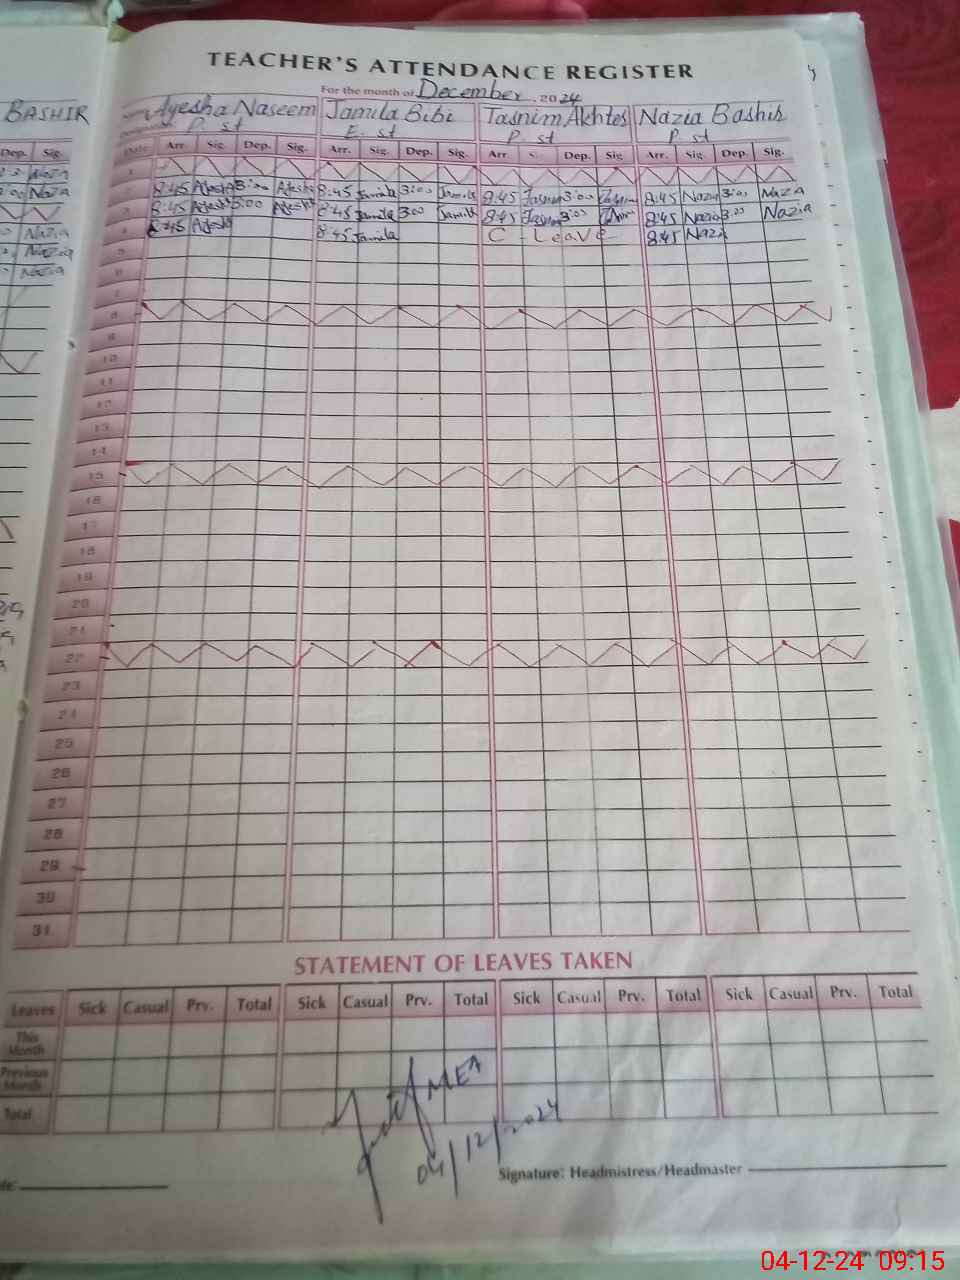 TEACHER'S ATTENDANCE REGISTER
For the month of December 2024
BASHIR
Name Ayesha Naseem Jamila Bibi Tasnim Akhter Nazia Bashir
P. st E. st P. st P. st
Dep. Sig.
Date Arr. Sig. Dep. Sig. Arr. Sig. Dep. Sig. Arr. Dep. Sig. Arr. Sig. Dep. Sig.
1
2 8:45 Ayesha 3:00 Ayesha 8:45 Jamila 3:00 Jamila 8:45 Tasnim 3:00 8:45 Nazia 3:00 Nazia
3 8:45 Ayesha 3:00 Ayesha 8:45 Jamila 3:00 Jamila 8:45 Tasnim 3:00 8:45 Nazia 3:00 Nazia
4 8:45 Ayesha 8:45 Jamila C - Leave 8:45 Nazia
Nazia
Nazia
Nazia
Nazia
Nazia
5
6
7
8
9
10
11
12
13
14
15
16
17
18
19
20
21
22
23
24
25
26
27
28
29
30
31
STATEMENT OF LEAVES TAKEN
Leaves Sick Casual Prv. Total Sick Casual Prv. Total Sick Casual Prv. Total Sick Casual Prv. Total
This Month
Previous Month
Total
MEA
04/12/2024
Signature: Headmistress/Headmaster
04-12-24 09:15